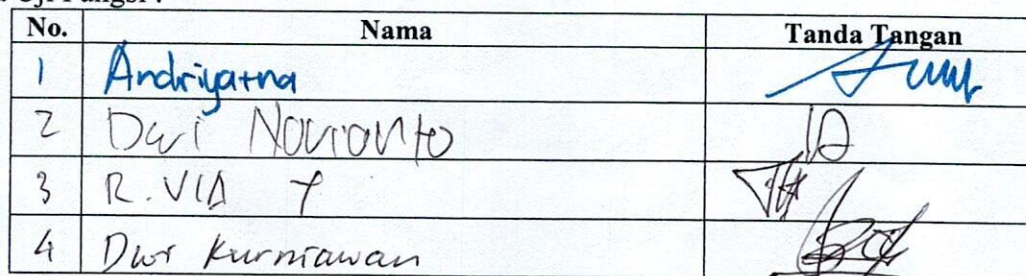 Uji Fungsi :
No. Nama Tanda Tangan
1 Andriyatna
2 Dwi Novianto
3 R. VIA Y
4 Dwi Kurniawan